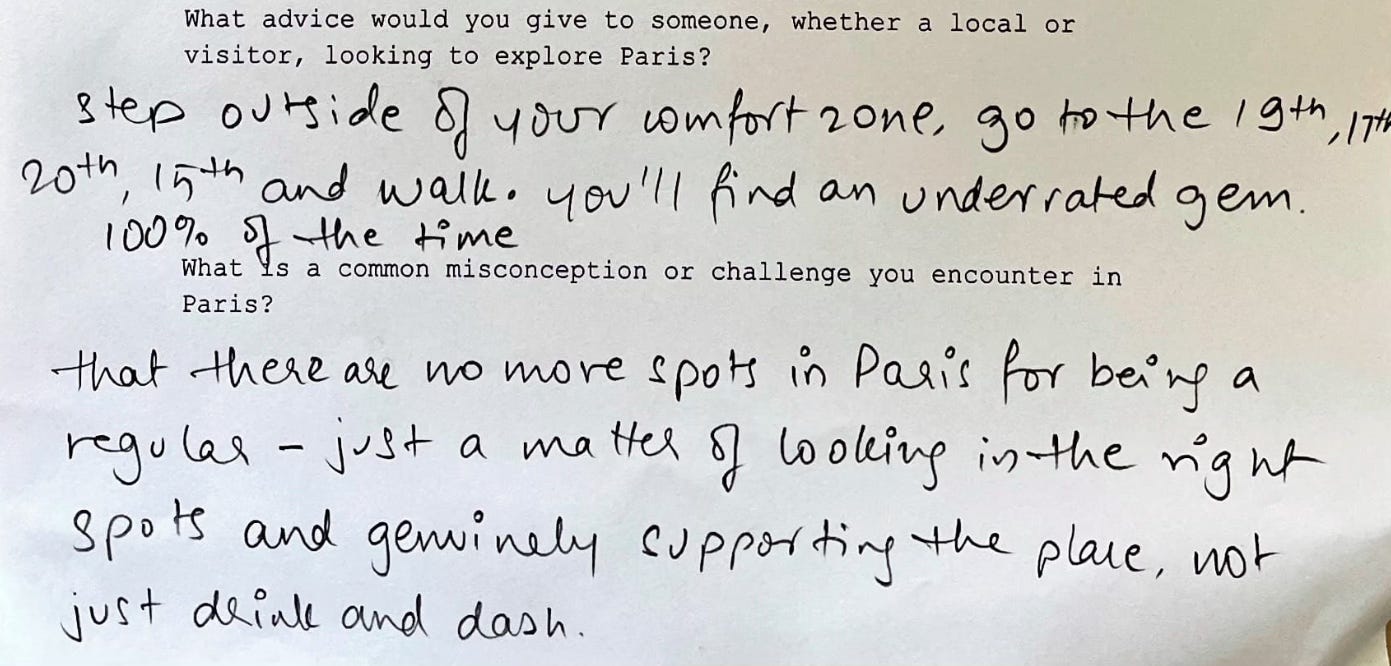 What advice would you give to someone, whether a local or
visitor, looking to explore Paris?
step outside of your comfort zone, go to the 19th, 17th
20th, 15th and walk. you'll find an underrated gem.
100% of the time
What is a common misconception or challenge you encounter in
Paris?
that there are no more spots in Paris for being a
regular – just a matter of looking in the right
spots and genuinely supporting the place, not
just drink and dash.